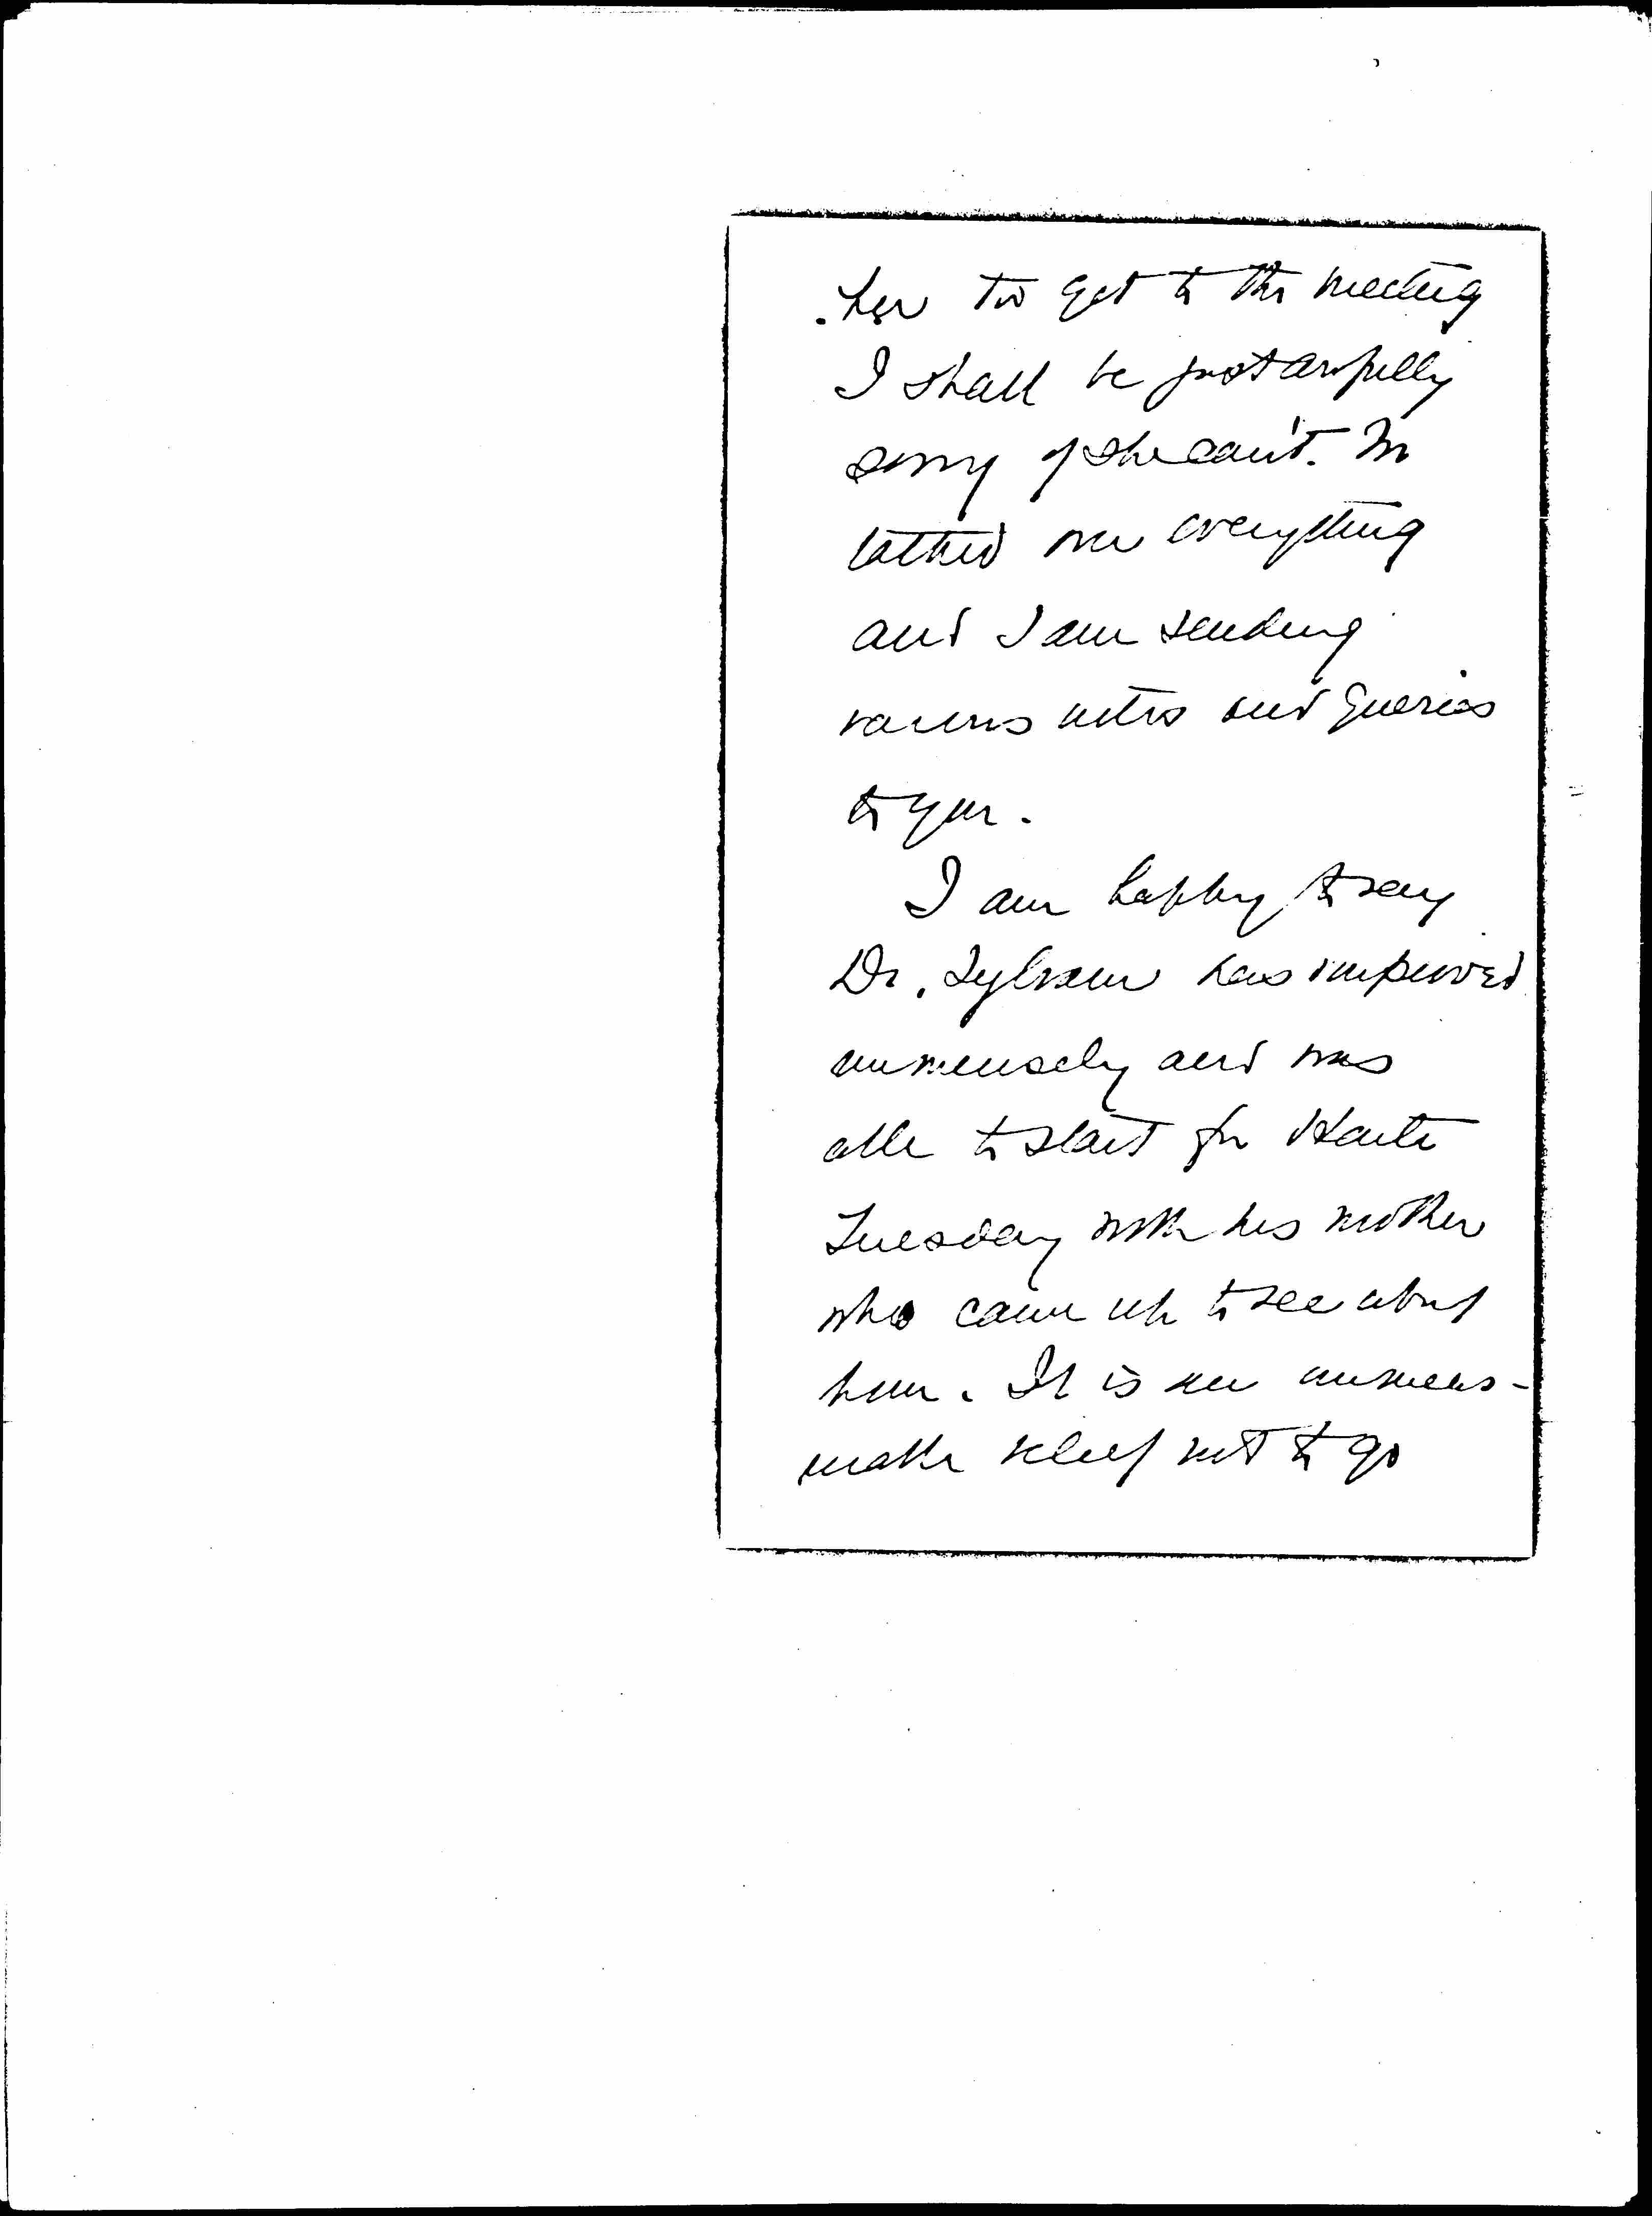 her to get to the meeting
I shall be just awfully
sorry if she can't. We
talked over everything
and I am sending
various notes and queries
to you.
I am happy to say
Dr. Sylvain has improved
immensely and was
able to start for Haiti
Tuesday with his mother
who came up to see about
him. It is an immens-
relief not to go